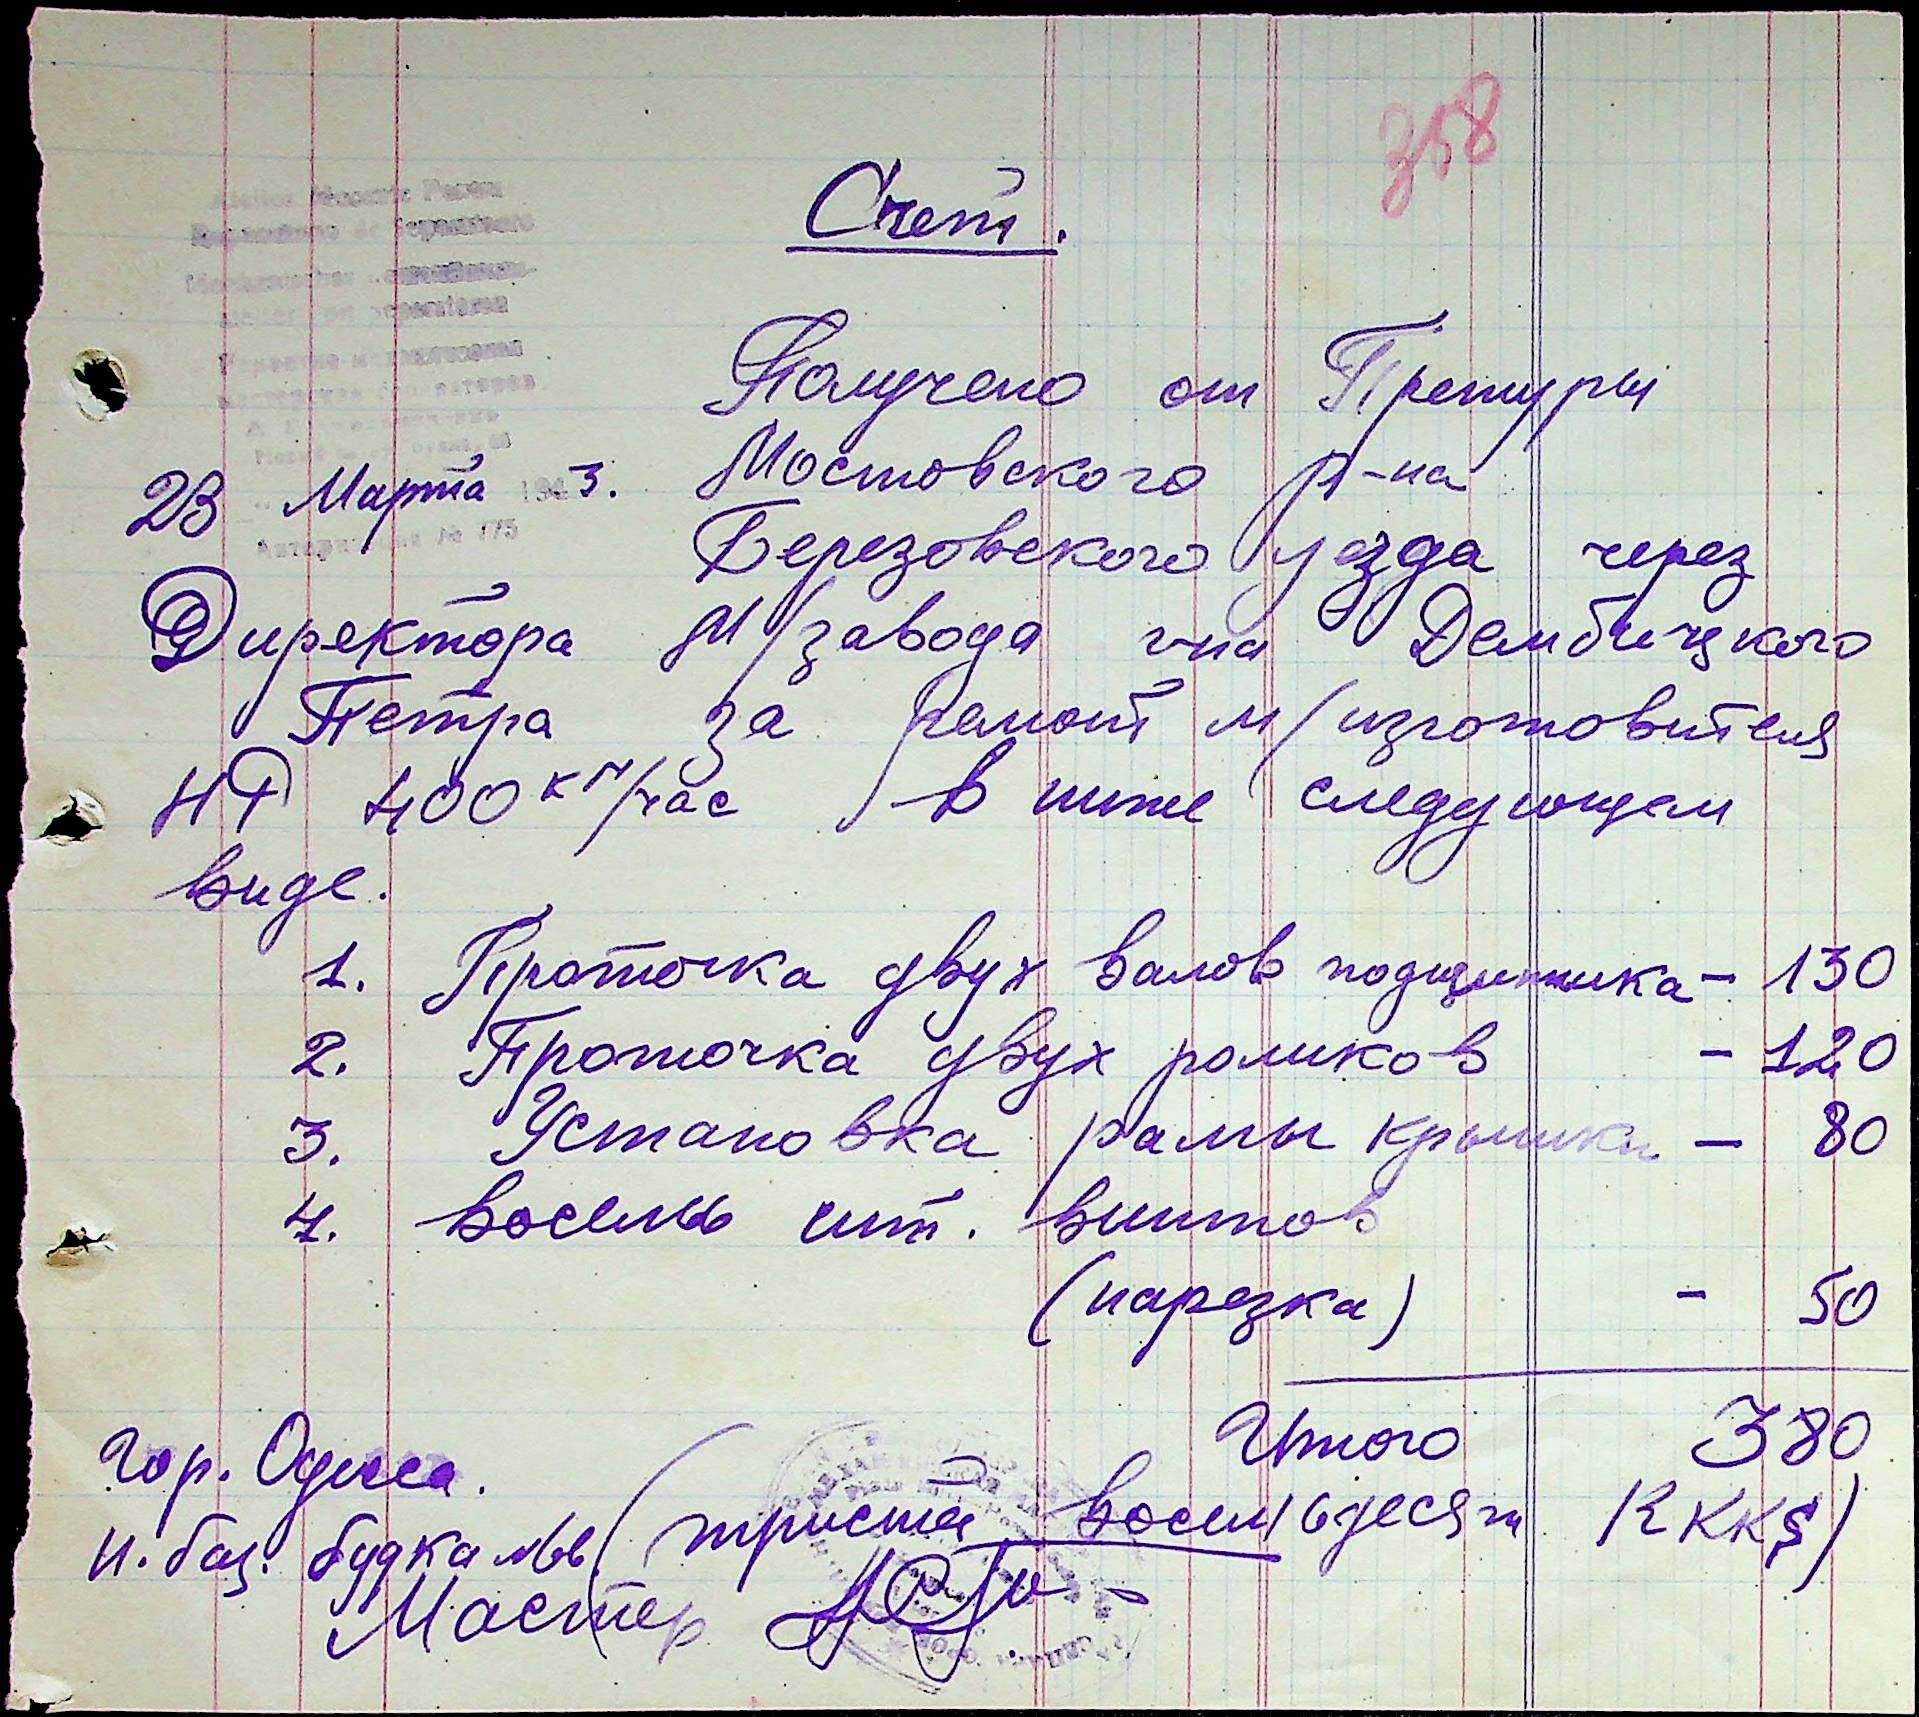 358
Счет.
Получено от Претуры
Мостовского р-на
23 Марта 1943.
Березовского уезда через
Авторизация № 175
Директора М/завода г-на Дембицкого
Петра за ремонт м/изготовителя
НФ 400 кг/час в ниже следующем
виде.
1. Проточка двух валов подшипника - 130
2. Проточка двух роликов - 120
3. Установка рамы крышки - 80
4. восемь шт. винтов
(нарезка) - 50
Итого 380
Гор. Одесса.
(триста восемьдесят RKKS)
Н. баз. будка №
Мастер